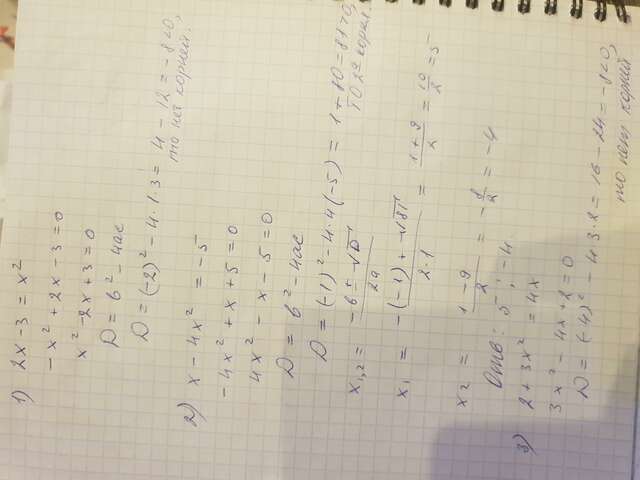 1) 2x-3 = x²
-x² + 2x - 3 = 0
x² - 2x + 3 = 0
D = b² - 4ac
D = (-2)² - 4·1·3 = 4 - 12 = -8<0,
то нет корней.
2) x - 4x² = -5
-4x² + x + 5 = 0
4x² - x - 5 = 0
D = b² - 4ac
D = (-1)² - 4·4(-5) = 1 + 80 = 81>0,
то 2 корня
x₁,₂ = -b ± √D / 2a
x₁ = -(-1) + √81 / 2·1 = 1+9 / 2 = 10/2 = 5
x₂ = 1-9 / 2 = -8/2 = -4
Отв: 5; -4.
3) 2 + 3x² = 4x
3x² - 4x + 2 = 0
D = (-4)² - 4·3·2 = 16 - 24 = -8<0,
то нет корней